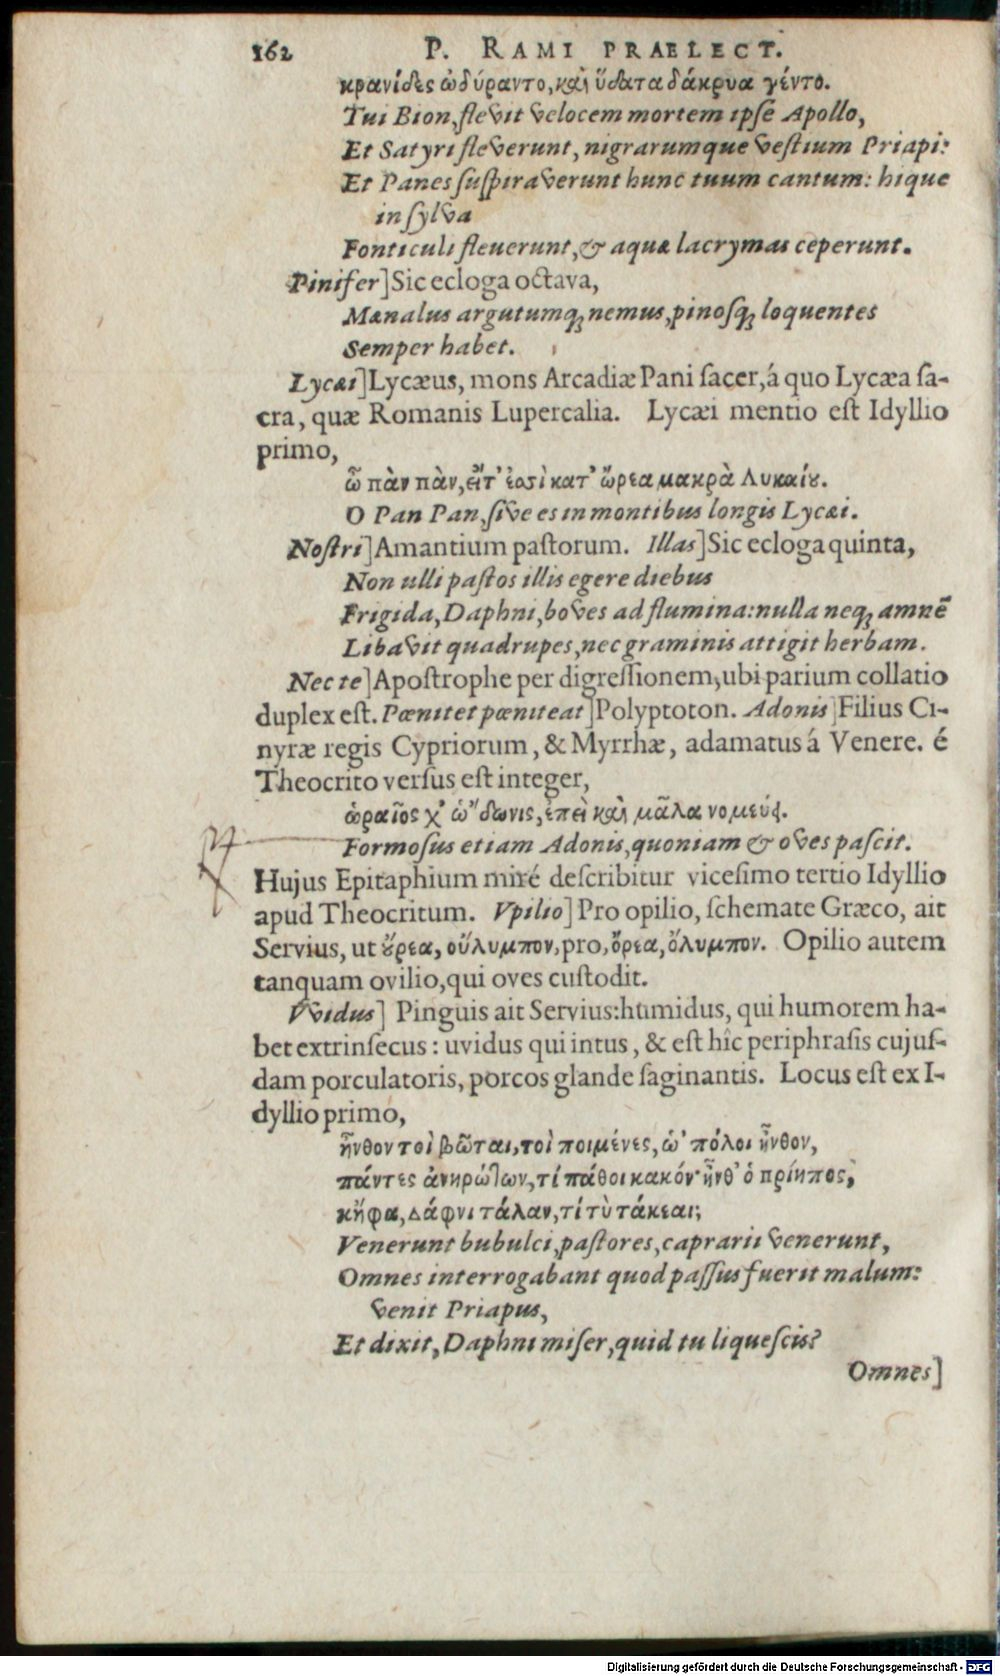 162 P. RAMI PRAELECT.
κρανίδες ὠδύραντο, καὶ ὕδατα δάκρυα γέντο.
Tui Bion, flevit velocem mortem ipse Apollo,
Et Satyri fleverunt, nigrarumque vestium Priapi:
Et Panes suspiraverunt hunc tuum cantum: hique
in sylva
Fonticuli fleuerunt, & aquæ lacrymas ceperunt.
Pinifer] Sic ecloga octava,
Mænalus argutumq; nemus, pinosq; loquentes
Semper habet.
Lycæi] Lycæus, mons Arcadiæ Pani sacer, á quo Lycæa sa-
cra, quæ Romanis Lupercalia. Lycæi mentio est Idyllio
primo,
ὦ πὰν πὰν, εἴτ' ἐσσὶ κατ' ὤρεα μακρὰ Λυκαίȣ.
O Pan Pan, sive es in montibus longis Lycæi.
Nostri] Amantium pastorum. Illas] Sic ecloga quinta,
Non ulli pastos illis egere diebus
Frigida, Daphni, boves ad flumina: nulla neq; amnē
Libavit quadrupes, nec graminis attigit herbam.
Nec te] Apostrophe per digressionem, ubi parium collatio
duplex est. Pœnitet pœniteat] Polyptoton. Adonis] Filius Ci-
nyræ regis Cypriorum, & Myrrhæ, adamatus á Venere. é
Theocrito versus est integer,
ὡραῖος χ' ὤ'δωνις, ἐπεὶ καὶ μᾶλα νομεύει.
Formosus etiam Adonis, quoniam & oves pascit.
Hujus Epitaphium miré describitur vicesimo tertio Idyllio
apud Theocritum. Vpilio] Pro opilio, schemate Græco, ait
Servius, ut ȣ́ρεα, οὔλυμπον, pro, ὄρεα, ὄλυμπον. Opilio autem
tanquam ovilio, qui oves custodit.
Vvidus] Pinguis ait Servius: humidus, qui humorem ha-
bet extrinsecus: uvidus qui intus, & est hîc periphrasis cujus-
dam porculatoris, porcos glande saginantis. Locus est ex I-
dyllio primo,
ἦνθον τοὶ βῶται, τοὶ ποιμένες, ὡ' πόλοι ἦνθον,
πάντες ἀνηρώτων, τί πάθοι κακόν· ἦνθ' ὁ πρίηπος,
κἤφα, Δάφνι τάλαν, τί τὺ τάκεαι;
Venerunt bubulci, pastores, caprarii venerunt,
Omnes interrogabant quod passus fuerit malum:
venit Priapus,
Et dixit, Daphni miser, quid tu liquescis?
Omnes]
Digitalisierung gefördert durch die Deutsche Forschungsgemeinschaft - DFG